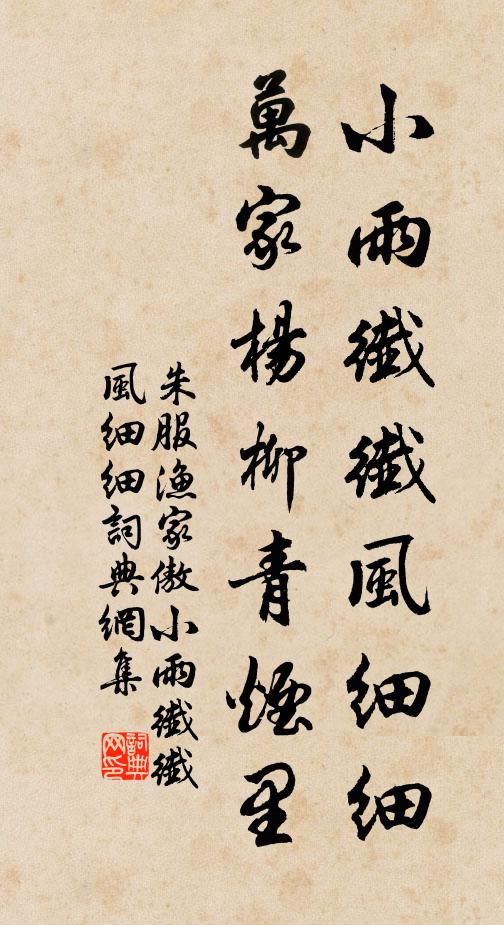 小雨纖纖風細細
萬家楊柳青煙里
朱服漁家傲小雨纖纖
風細細詞典網集
詞典
网印